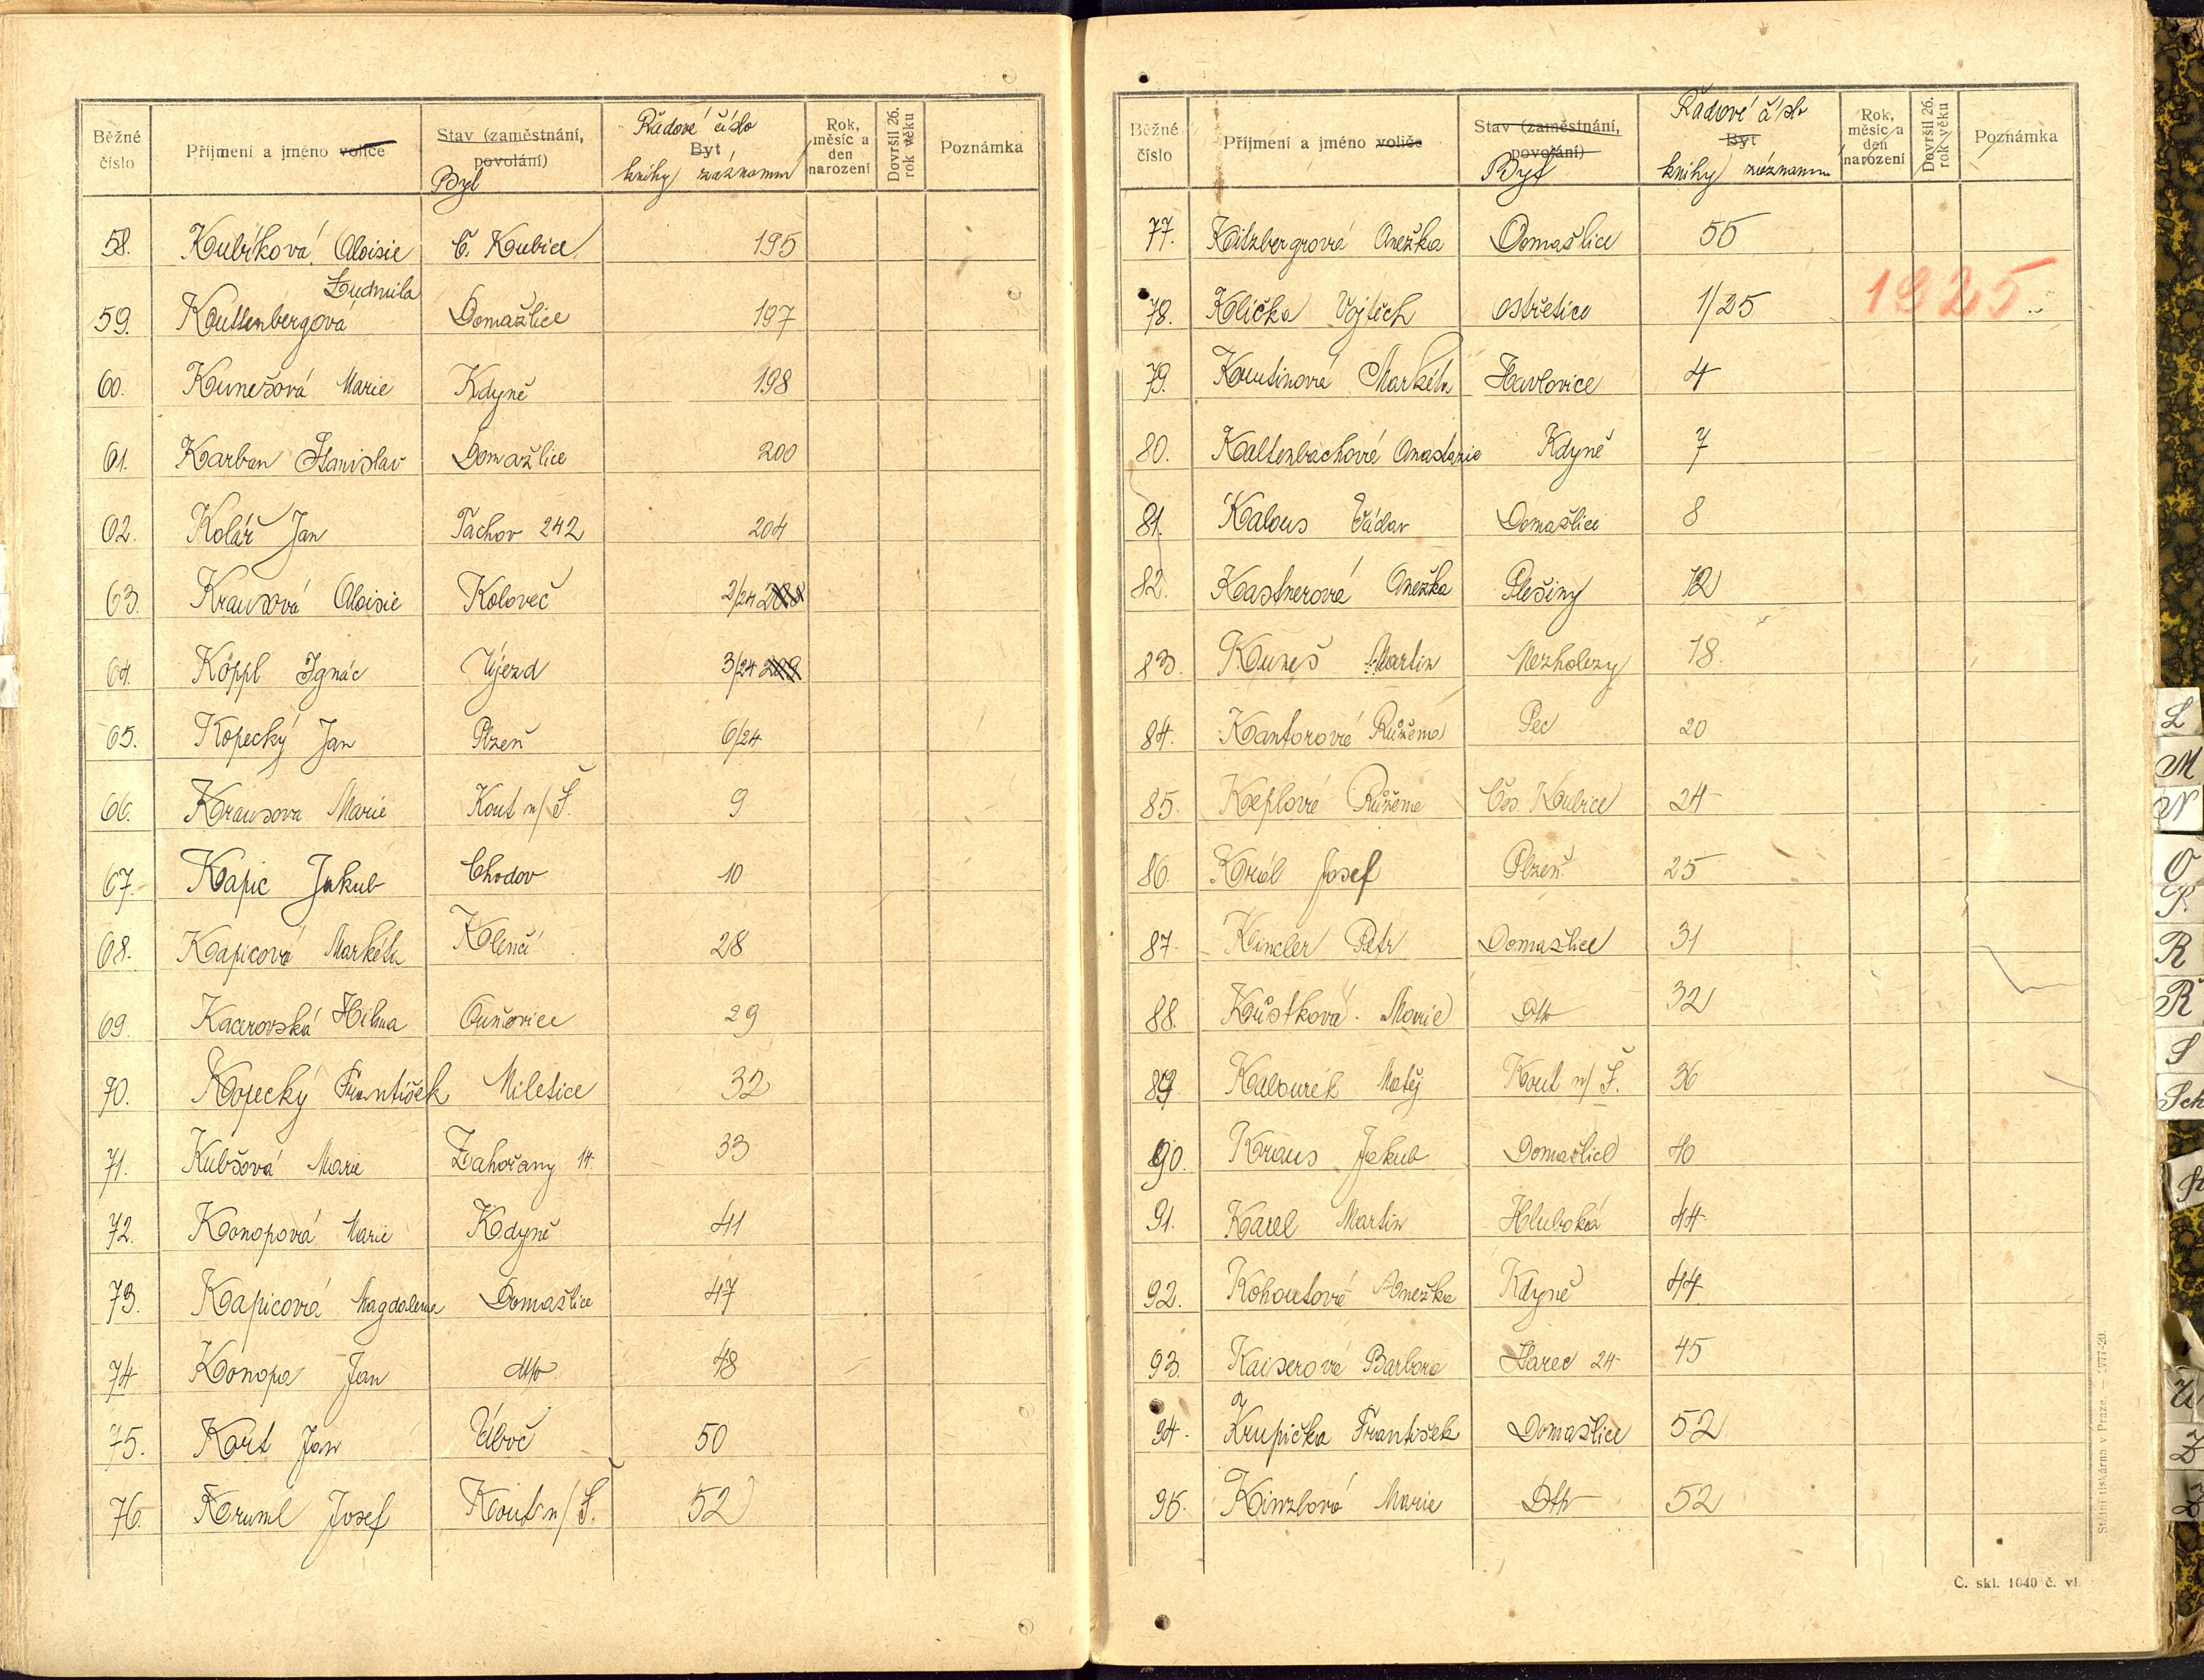 Běžné číslo | Příjmení a jméno voliče | Stav (zaměstnání, povolání) Byt | Řadové číslo Byt knihy záznamní | Rok, měsíc a den narození | Dovršil 26. rok věku | Poznámka
58. Kubíková Aloisie Č. Kubice 195
Ludmila
59. Kuttenbergová Domažlice 197
60. Kunešová Marie Kdyně 198
61. Karban Stanislav Domažlice 200
62. Kolář Jan Tachov 242 204
63. Krausová Aloisie Koloveč 2/24 208
64. Köppl Ignác Újezd 3/24 209
65. Kopecký Jan Plzeň 6/24
66. Krausova Marie Kout n/Š. 9
67. Kapic Jakub Chodov 10
68. Kapicová Markéta Klenčí 28
69. Kacerovská Hilma Ouňovice 29
70. Kopecký František Miletice 32
71. Kubšová Marie Zahořany 14. 33
72. Konopová Marie Kdyně 41
73. Kapicová Magdalena Domažlice 47
74. Konopa Jan dtto 48
75. Kort Jan Úboč 50
76. Kruml Josef Kout n/Š. 52
Běžné číslo | Příjmení a jméno voliče | Stav (zaměstnání, povolání) Byt | Řadové číslo Byt knihy záznamní | Rok, měsíc a den narození | Dovršil 26. rok věku | Poznámka
77. Kitzbergrová Anežka Domažlice 55
78. Klička Vojtěch Ostřetice 1/25 1925
79. Kautinová Markéta Havlovice 4
80. Kaltenbachová Anastazie Kdyně 7
81. Kalous Václav Domažlice 8
82. Kastnerová Anežka Plešiny 12
83. Kuneš Martin Nezholezy 18.
84. Kantorová Růžena Pec 20
85. Keplová Růžena Čes. Kubice 24
86. Král Josef Plzeň 25
87. Kincler Petr Domažlice 31
88. Kůstková Marie Dtto 32
89. Kalourek Matěj Kout n/Š. 36
90. Kraus Jakub Domažlice 40
91. Karel Martin Hluboká 44
92. Kohoutová Anežka Kdyně 44
93. Kaiserová Barbora Starec 24 45
94. Krupička František Domažlice 52
95. Kinzlová Marie Dtto 52
Státní tiskárna v Praze. — 5777-20.
Č. skl. 1040 č. vl.
L
M
N
O
P.
R
Ř
S
Sch
Z
Ž